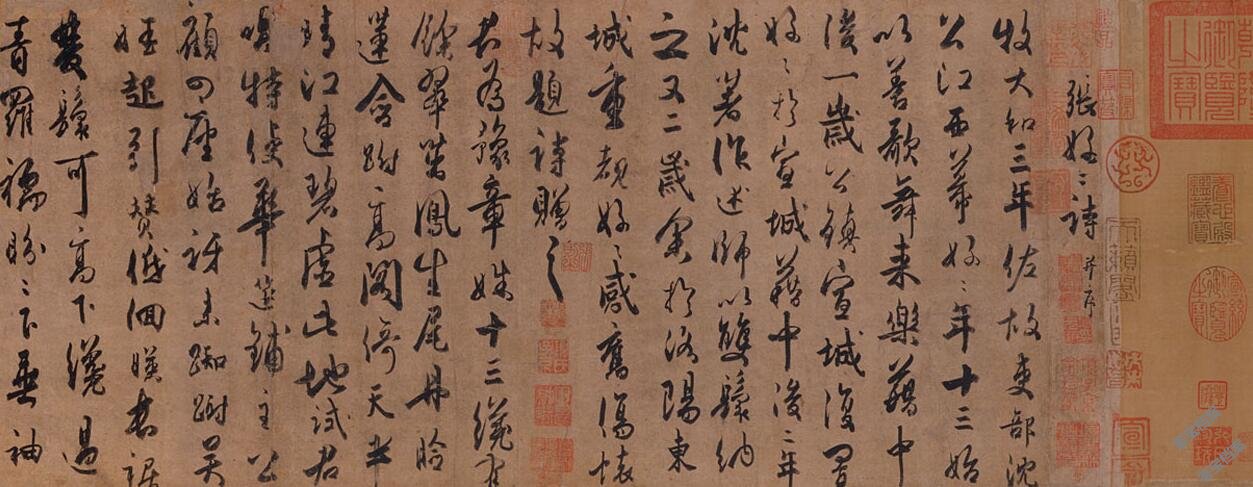 乾隆御覽之寶
張好〻詩 并序
牧大和三年佐故吏部沈
公江西幕好〻年十三始
以善歌舞來樂籍中
後一歲公鎮宣城復置
好〻於宣城籍中後二年
沈著作述師以雙鬟納
之又二歲余於洛陽東
城重覩好〻感舊傷懷
故題詩贈之
君為豫章姝十三纔有
餘翠茁鳳生尾丹臉
蓮含跗高閣倚天半
晴江連碧虛此地試君
唱特使華筵鋪主公
顧四座始訝來踟跦吳
娃起引贊低佪暎長裾
雙鬟可高下纔過
青羅襦盼〻下垂袖